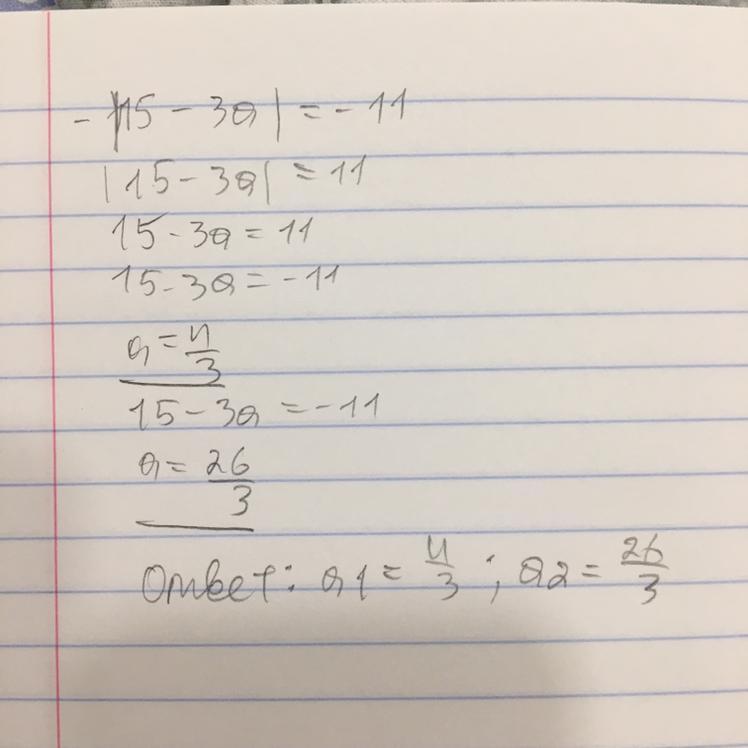 - |15 - 3a| = - 11
|15 - 3a| = 11
15 - 3a = 11
15 - 3a = -11
a = 4/3
15 - 3a = -11
a = 26/3
Ответ: a1 = 4/3 ; a2 = 26/3